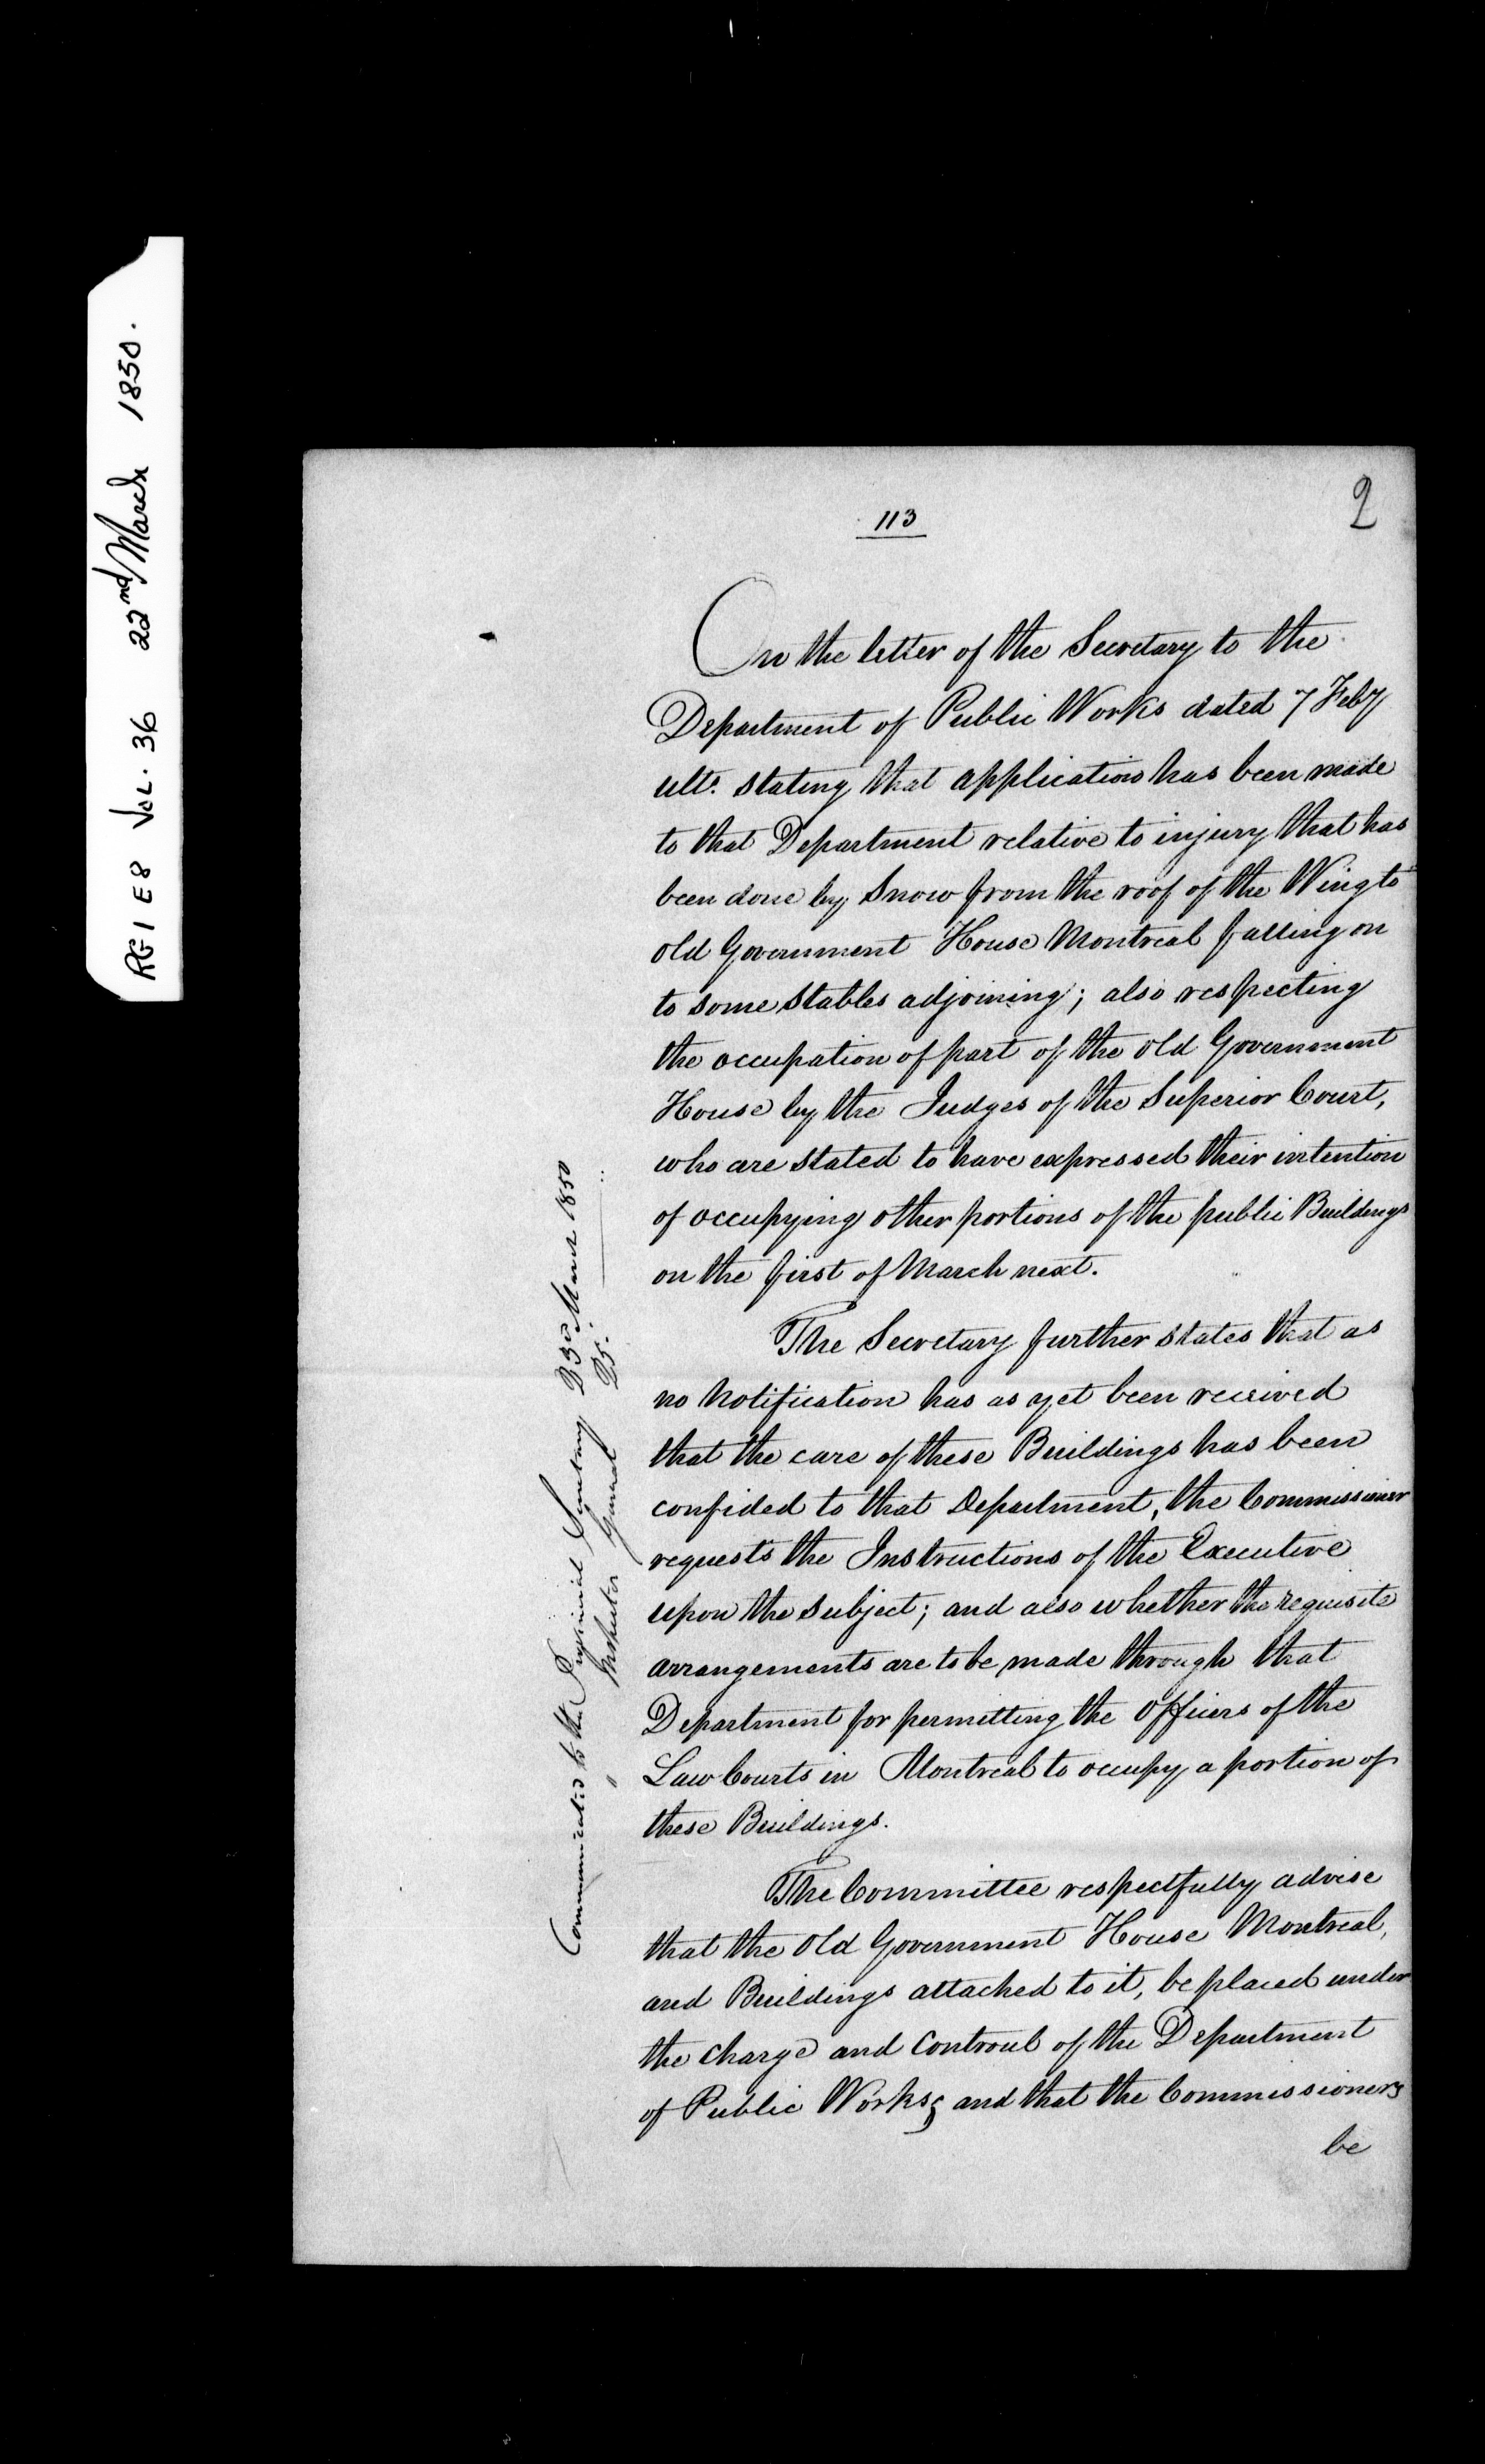 RG1 E8 VOL. 36 22nd March 1850.
113
2
On the letter of the Secretary to the
Department of Public Works dated 7 Feby
ulto. stating that application has been made
to that Department relative to injury that has
been done by Snow from the roof of the Wing to
old Government House Montreal falling on
to some stables adjoining; also respecting
the occupation of part of the old Government
House by the Judges of the Superior Court,
who are stated to have expressed their intention
of occupying other portions of the public Buildings
on the first of March next.
The Secretary further states that as
no notification has as yet been received
that the care of these Buildings has been
confided to that Department, the Commissioner
requests the Instructions of the Executive
upon the subject; and also whether the requisite
arrangements are to be made through that
Department for permitting the Officers of the
Law Courts in Montreal to occupy a portion of
these Buildings.
The Committee respectfully advise
that the Old Government House Montreal,
and Buildings attached to it, be placed under
the charge and controul of the Department
of Public Works; and that the Commissioners
be
Communicated to the Provincial Secretary 23d March 1850
" Inspector General 25. " "